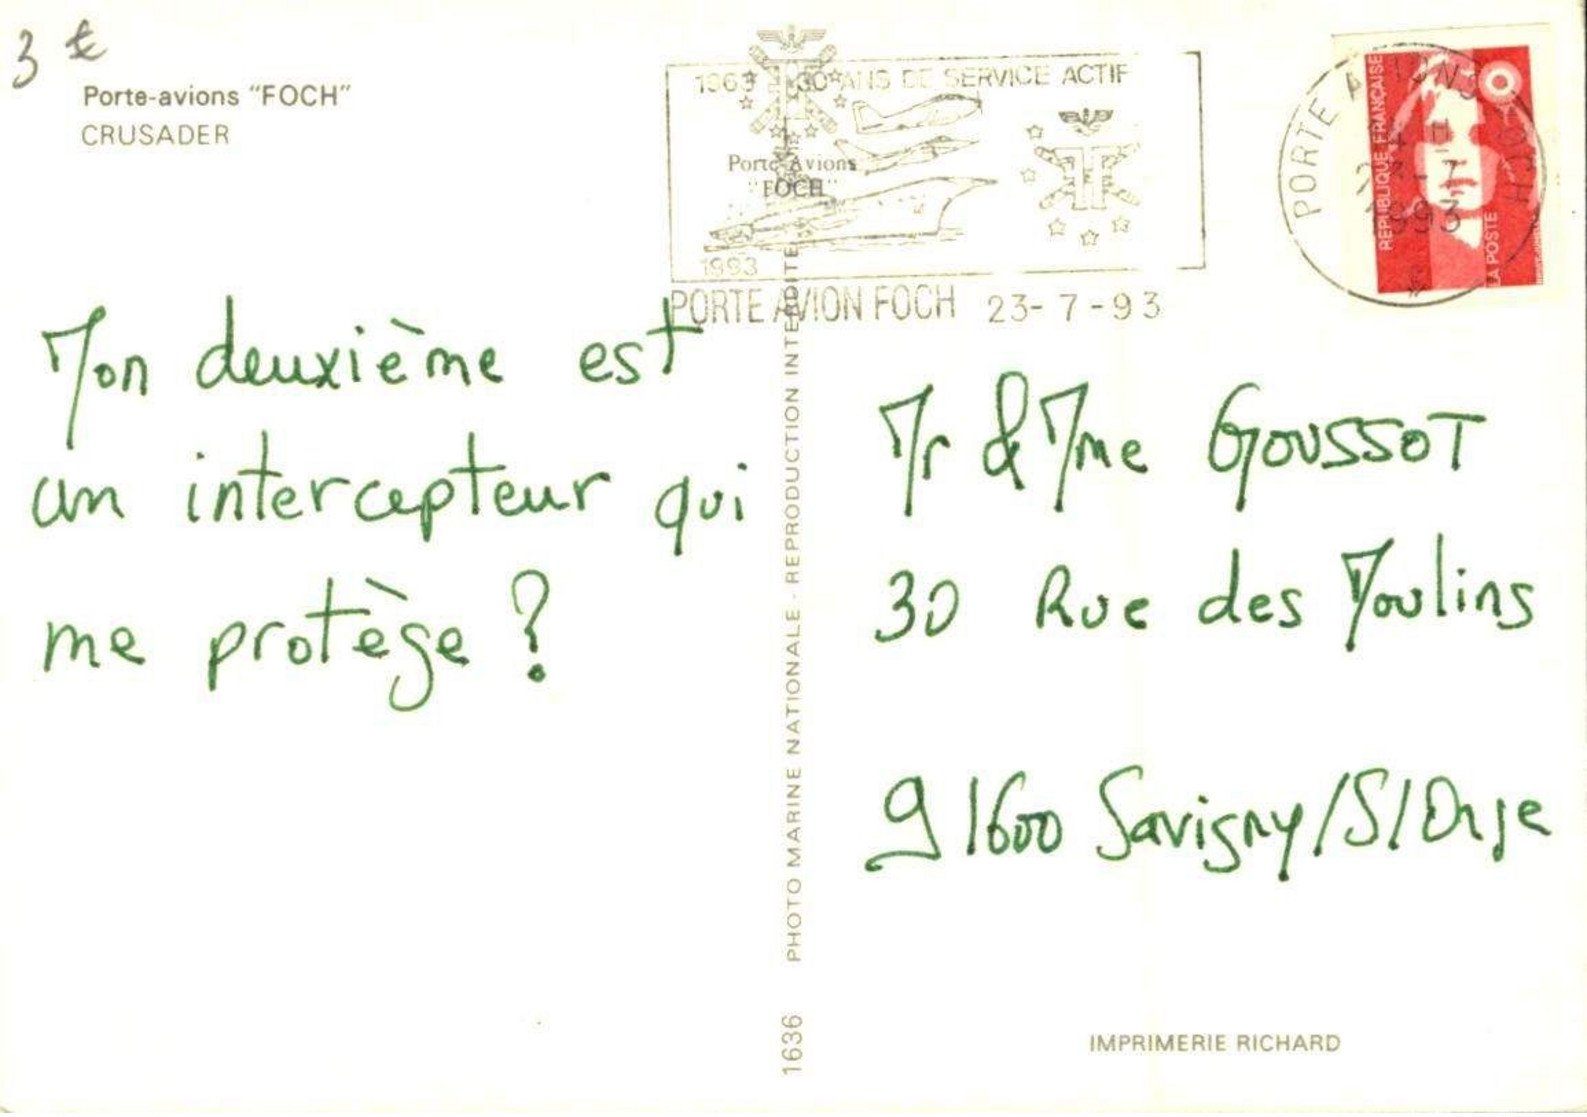 3 €
Porte-avions "FOCH"
CRUSADER
1963 30 ANS DE SERVICE ACTIF
Porte-Avions
"FOCH"
1993
PORTE AVION FOCH 23-7-93
PORTE AVIONS FOCH
23-7
1993
REPUBLIQUE FRANÇAISE
LA POSTE
Mon deuxième est
un intercepteur qui
me protège ?
Mr & Mme GOUSSOT
30 Rue des Moulins
91600 Savigny/S/Orge
1636 PHOTO MARINE NATIONALE - REPRODUCTION INTERDITE
IMPRIMERIE RICHARD